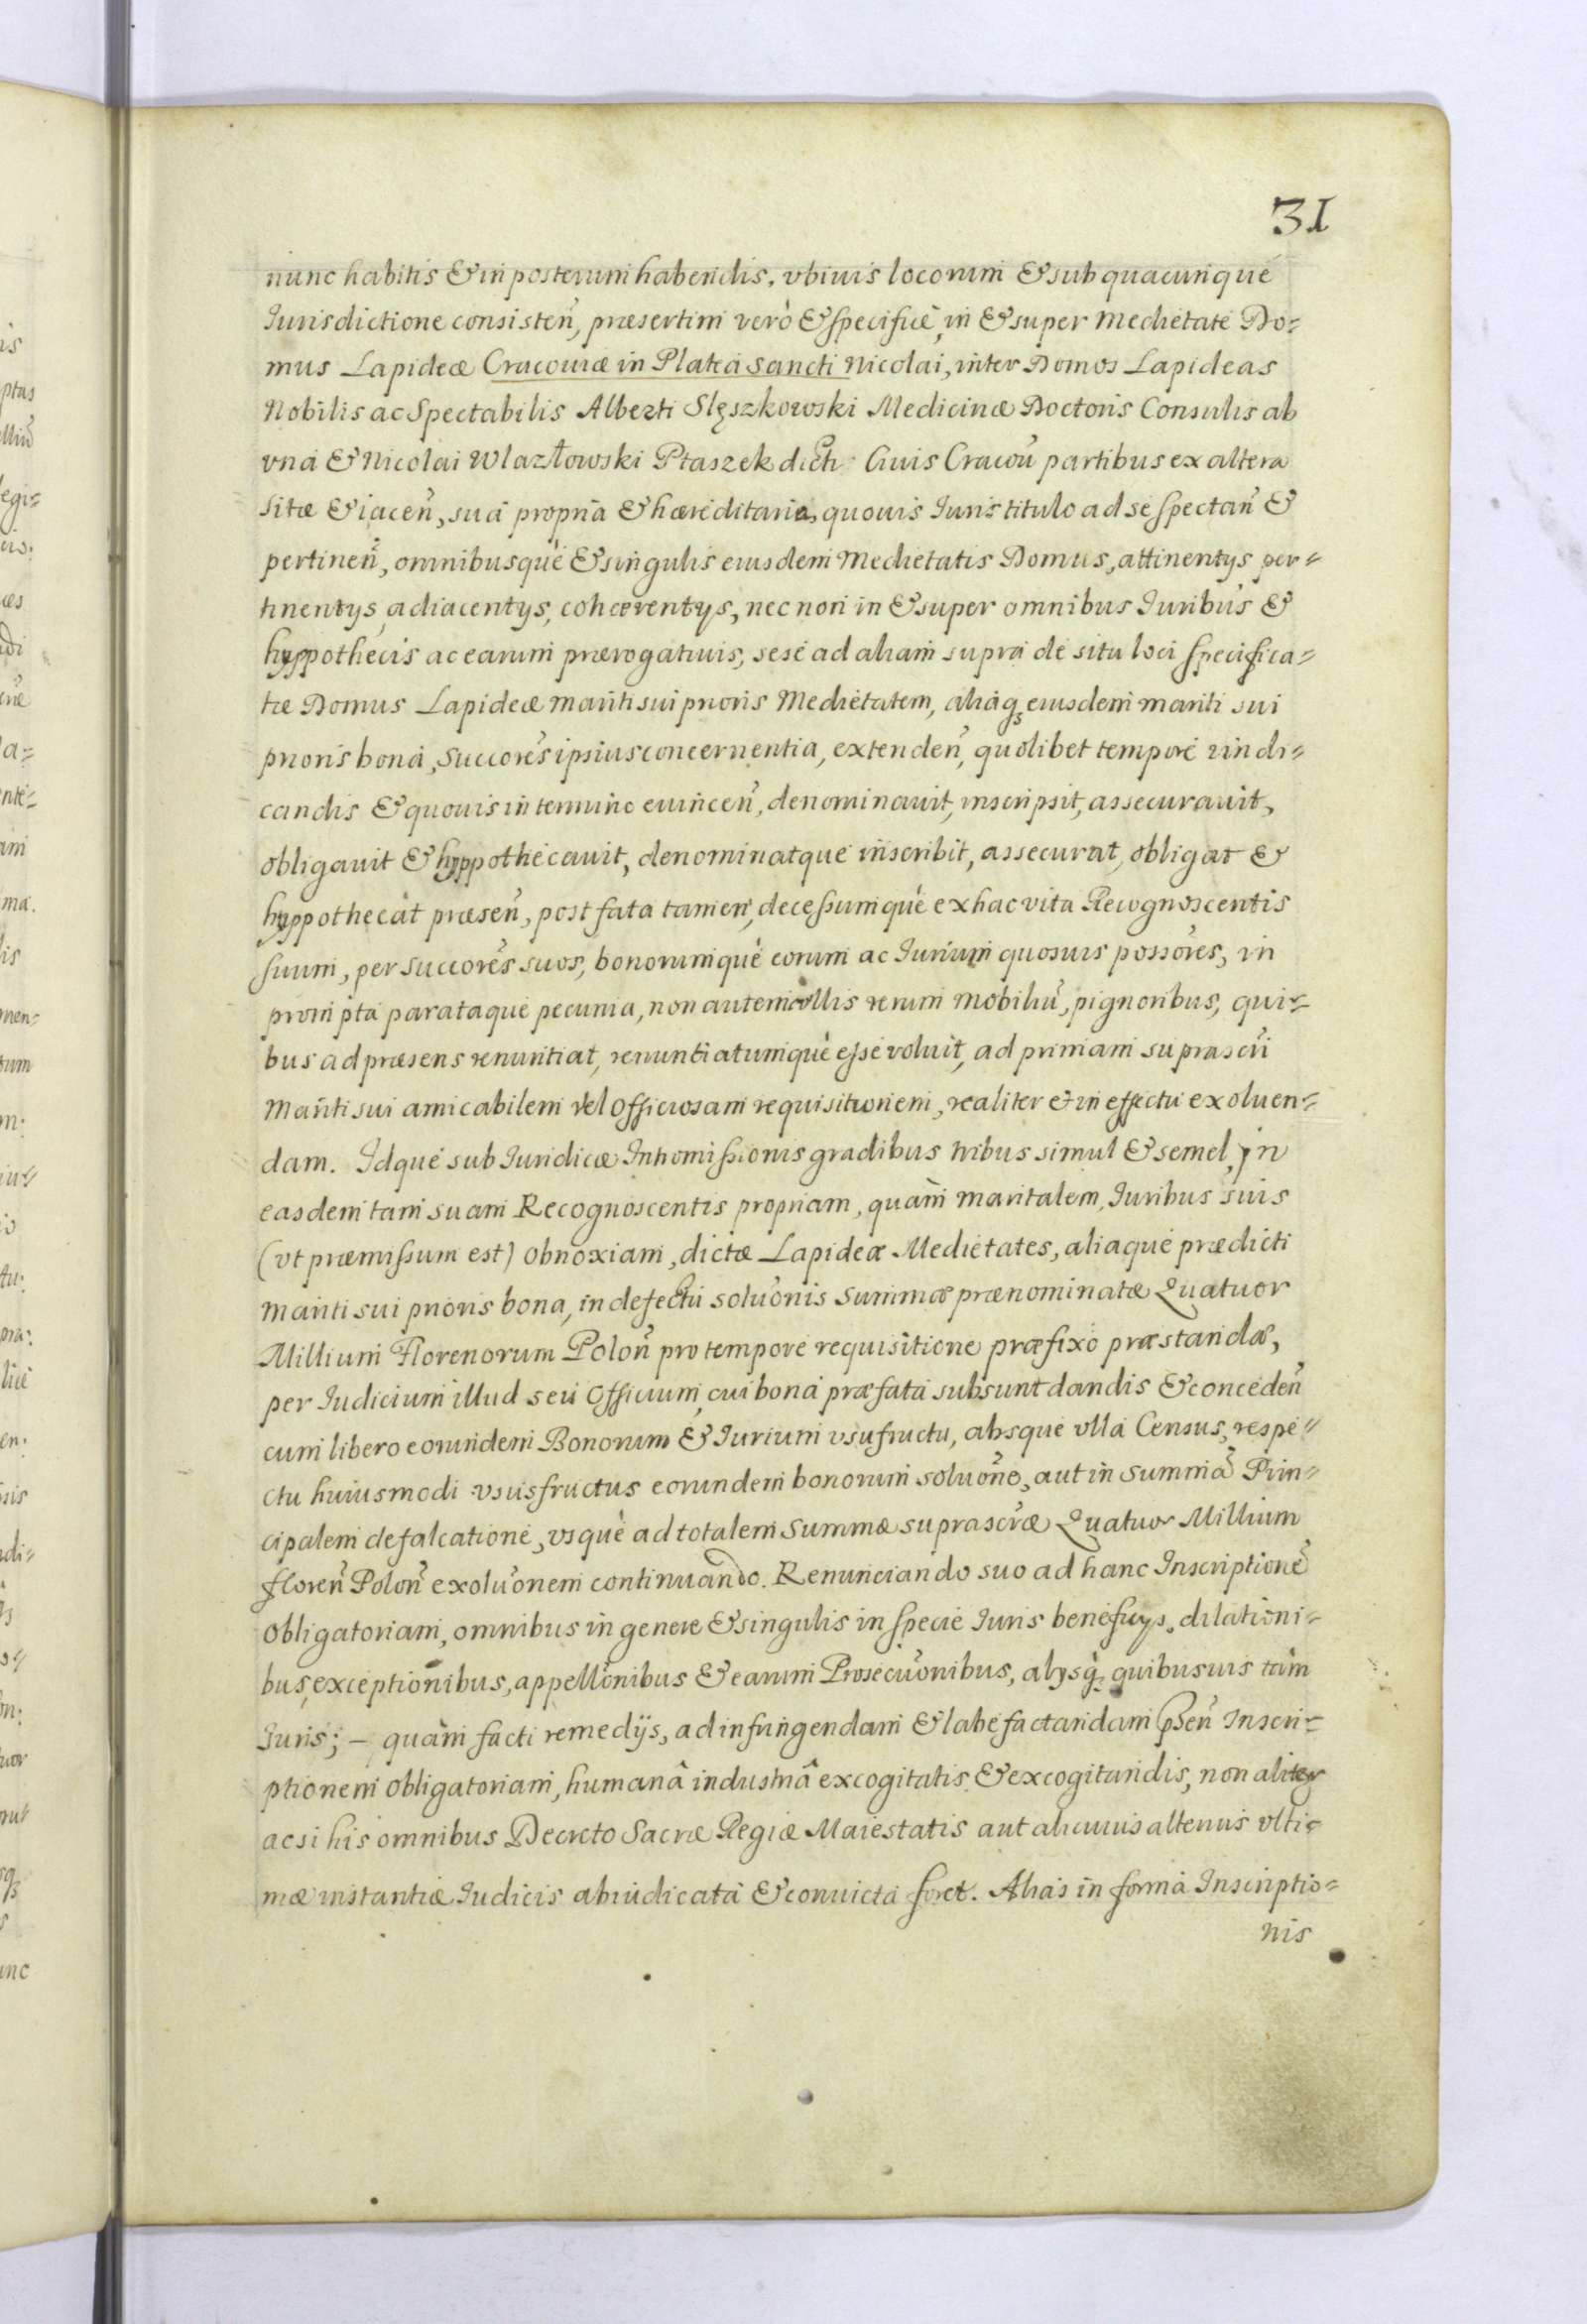 31
nunc habitis & in posterum habendis, vbiuis locorum & sub quacunque
Iurisdictione consisteñ, præsertim verò & specificè, in & super Medietate Do=
mus Lapideæ Cracouiæ in Platea Sancti Nicolai, inter Domos Lapideas
Nobilis ac Spectabilis Alberti Slęszkowski Medicinæ Doctoris Consulis ab
vna & Nicolai Wlazłowski Ptaszek dicti Ciuis Cracoũ partibus ex altera
sitæ & iaceñ, sua propria & hæreditaria, quouis Iuris titulo ad se spectañ &
pertineñ, omnibusquè & singulis eiusdem Medietatis Domus, attinentys per=
tinentys, adiacentys, cohærentys, nec non in & super omnibus Iuribus &
hyppothecis ac earum prærogatiuis, sese ad aliam supra de situ loci specifica=
tæ Domus Lapideæ mariti sui prioris Medietatem, aliaq₃ eiusdem mariti sui
prioris bona, succores ipsius concernentia, extendeñ, quolibet tempore vindi=
candis & quouis in termino euinceñ, denominauit, inscripsit, assecurauit,
obligauit & hyppothecauit, denominatque inscribit, assecurat, obligat &
hyppothecat præseñ, post fata tamen, decessumquè ex hac vita Recognoscentis
suum, per succores suos, bonorumquè eorum ac Iurium quosuis possores, in
prompta parataque pecunia, non autem vllis rerum mobiliũ, pignoribus, qui=
bus ad præsens renuntiat, renuntiatumquè esse voluit, ad primam suprascri
Mariti sui amicabilem vel officiosam requisitionem, realiter & in effectu exoluen=
dam. Idque sub Iuridicæ Intromissionis gradibus tribus simul & semel, in
easdem tam suam Recognoscentis propriam, quàm maritalem, Iuribus suis
(vt præmissum est) obnoxiam, dictæ Lapideæ Medietates, aliaque prædicti
mariti sui prioris bona, in defectu soluõnis summæ prænominatæ Quatuor
Millium Florenorum Poloñ pro tempore requisitione præfixo præstandæ,
per Iudicium illud seu Officium, cui bona præfata subsunt dandis & concedeñ
cum libero eorundem Bonorum & Iurium vsufructu, absque vlla Census, respe=
ctu huiusmodi vsusfructus eorundem bonorum soluõne, aut in summã Prin=
cipalem defalcatione, vsquè ad totalem summæ suprascræ Quatuor Millium
floreñ Poloñ exoluõnem continuando. Renunciando suo ad hanc Inscriptionẽ
obligatoriam, omnibus in genere & singulis in specie Iuris beneficys, dilationi=
bus, exceptionibus, appellõnibus & earum Prosecuõnibus, alysq₃ quibusuis tàm
Iuris; — quàm facti remedijs, ad infringendam & labefactandam pseñ Inscri=
ptionem obligatoriam, humanâ industriâ excogitatis & excogitandis, non aliter
acsi his omnibus Decreto Sacræ Regiæ Maiestatis aut alicuius alterius vlti=
mæ instantiæ Iudicis abiudicata & conuicta foret. Alias in forma Inscriptio=
nis